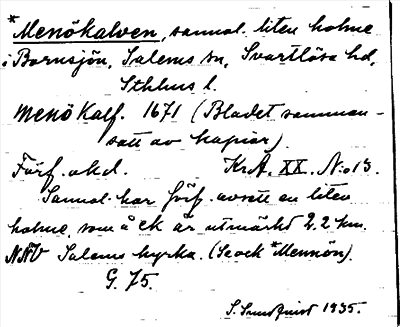 *Menökalven, sannol. liten holme
i Bornsjön, Salems sn, Svartlösa hd,
Sthlms l.
Menö Kalf. 1671 (Bladet samman-
satt av kopior)
Förf. okd. Kr.A. XX. N:o 13.
Sannol. har förf. avsett en liten
holme, som å ek är utmärkt 2,2 km.
NNV Salems kyrka. (Se ock *Mennön).
G. 75.
S. Sundquist 1935.